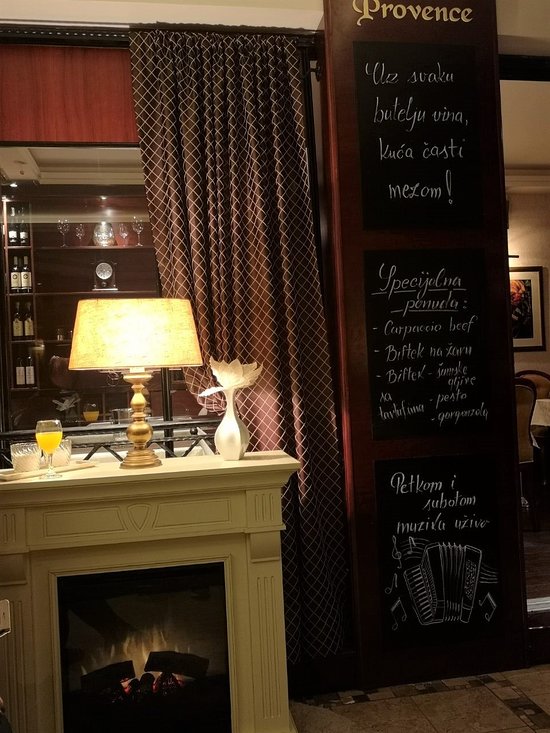 Provence
Uz svaku
butelju vina,
kuća časti
mezom!
Specijalna
ponuda:
- Carpaccio beef
- Biftek na žaru
- Biftek - šumske
gljive
sa - pesto
tartufima - gorgonzola
Petkom i
subotom
muzika uživo